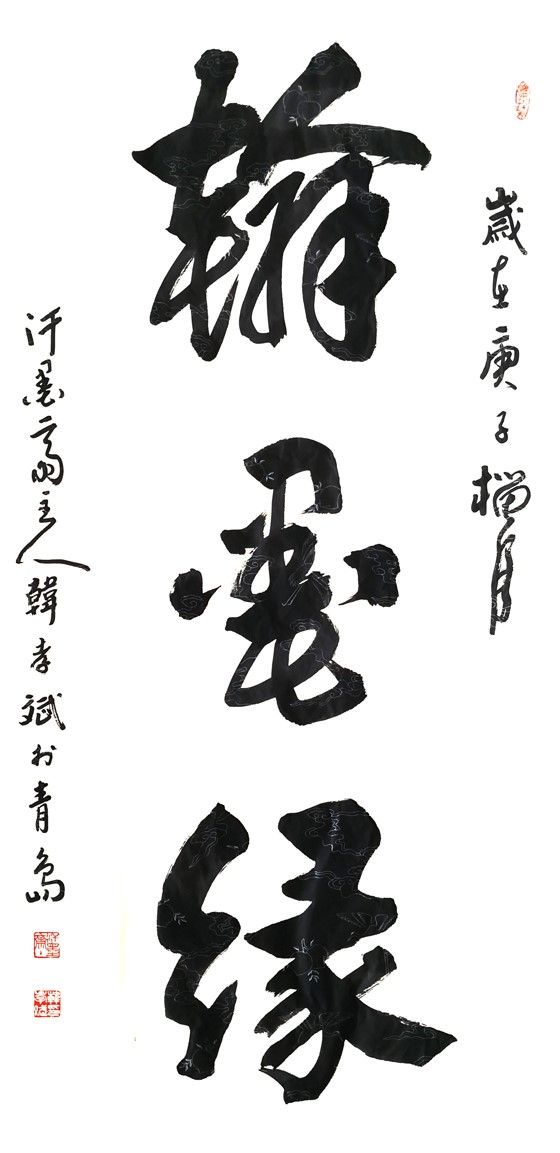 歲在庚子榴月
翰墨缘
汗墨齋主人韓孝斌於青島